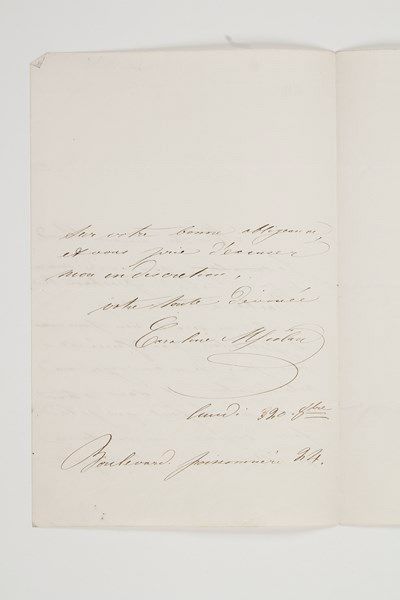 Sur votre bonne obligeance
et vous prie d'excuser
mon indiscretion.
votre toute dévouée
Caroline
lundi 8bre
Boulevard poissonnière 24.